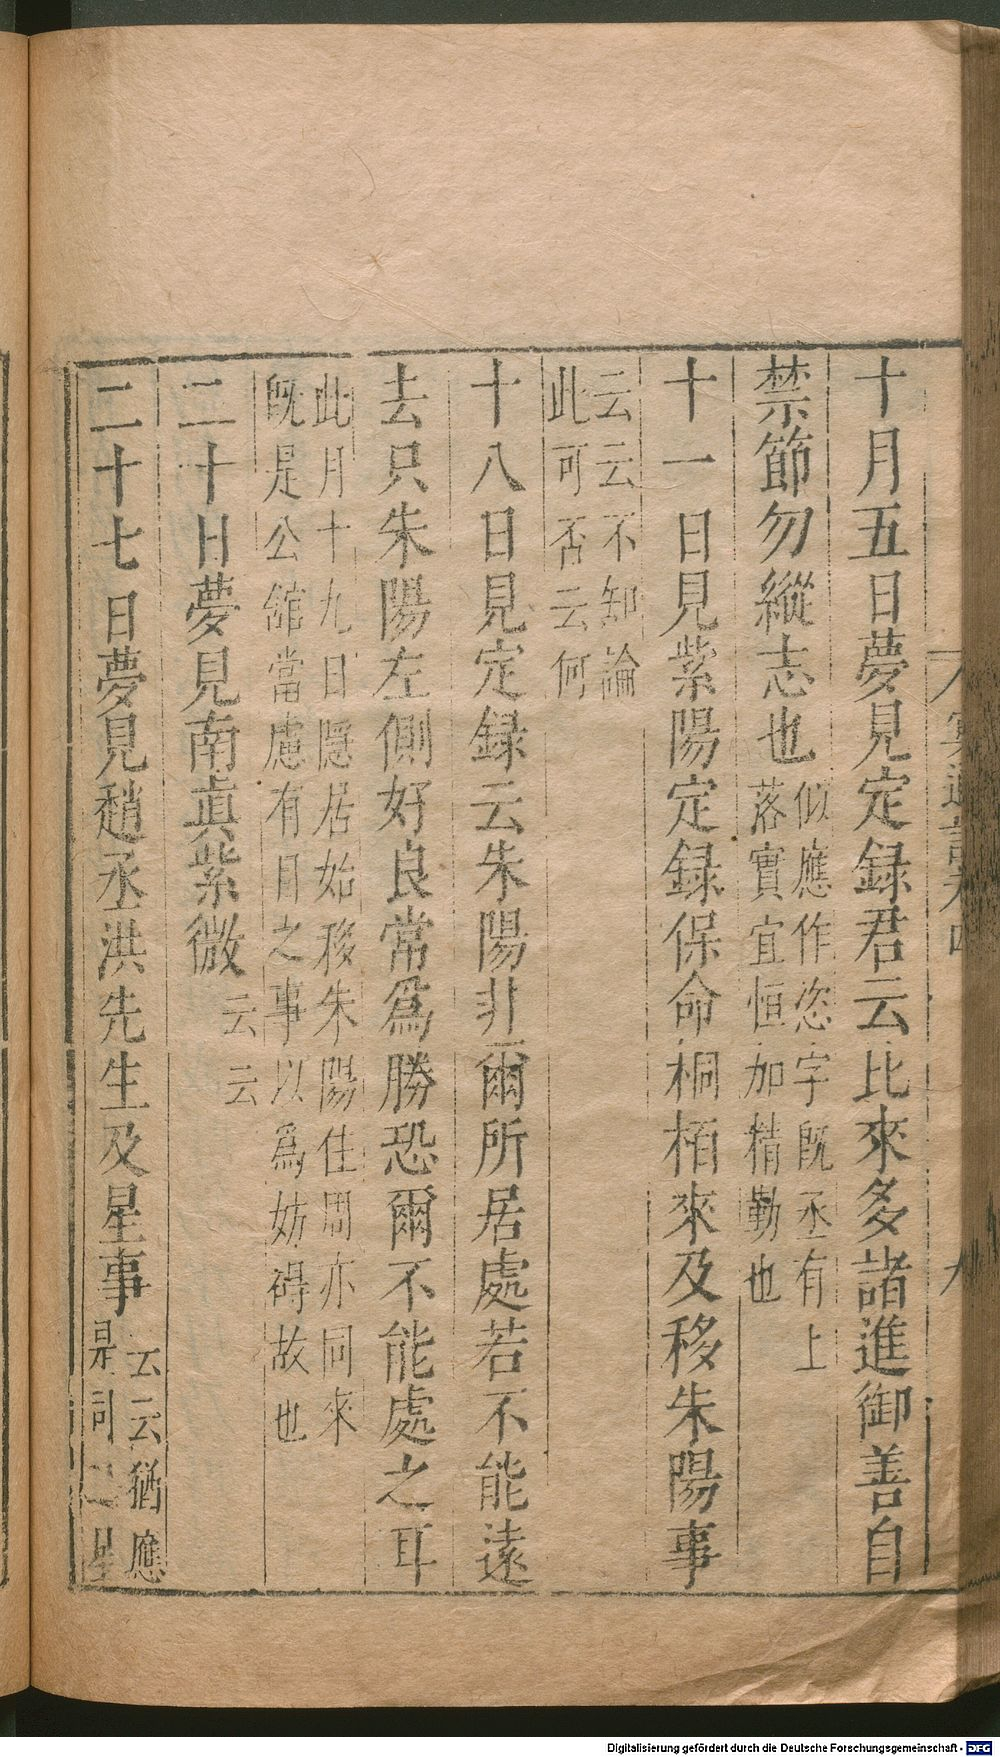 十月五日夢見定録君云比來多諸進御善自
禁節勿縱志也
似應作恣字旣丞有上
落實宜恒加精勤也
十一日見紫陽定録保命桐栢來及移朱陽事
云云不知論
此可否云何
十八日見定録云朱陽非爾所居處若不能遠
去只朱陽左側好良常爲勝恐爾不能處之耳
此月十九日隱居始移朱陽住周亦同來
旣是公舘當慮有目之事以爲妨碍故也
二十日夢見南眞紫微
云云
二十七日夢見趙丞洪先生及星事
云云猶應
是司
冥通記卷四
九
Digitalisierung gefördert durch die Deutsche Forschungsgemeinschaft - DFG